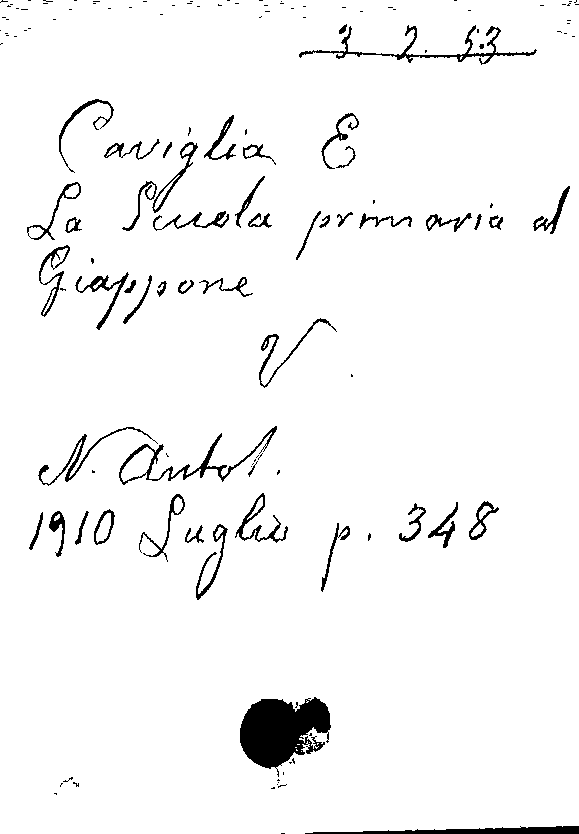 3. 2. 53
Caviglia E
La Scuola primaria al
Giappone
V.
N. Antol.
1910 Luglio p. 348